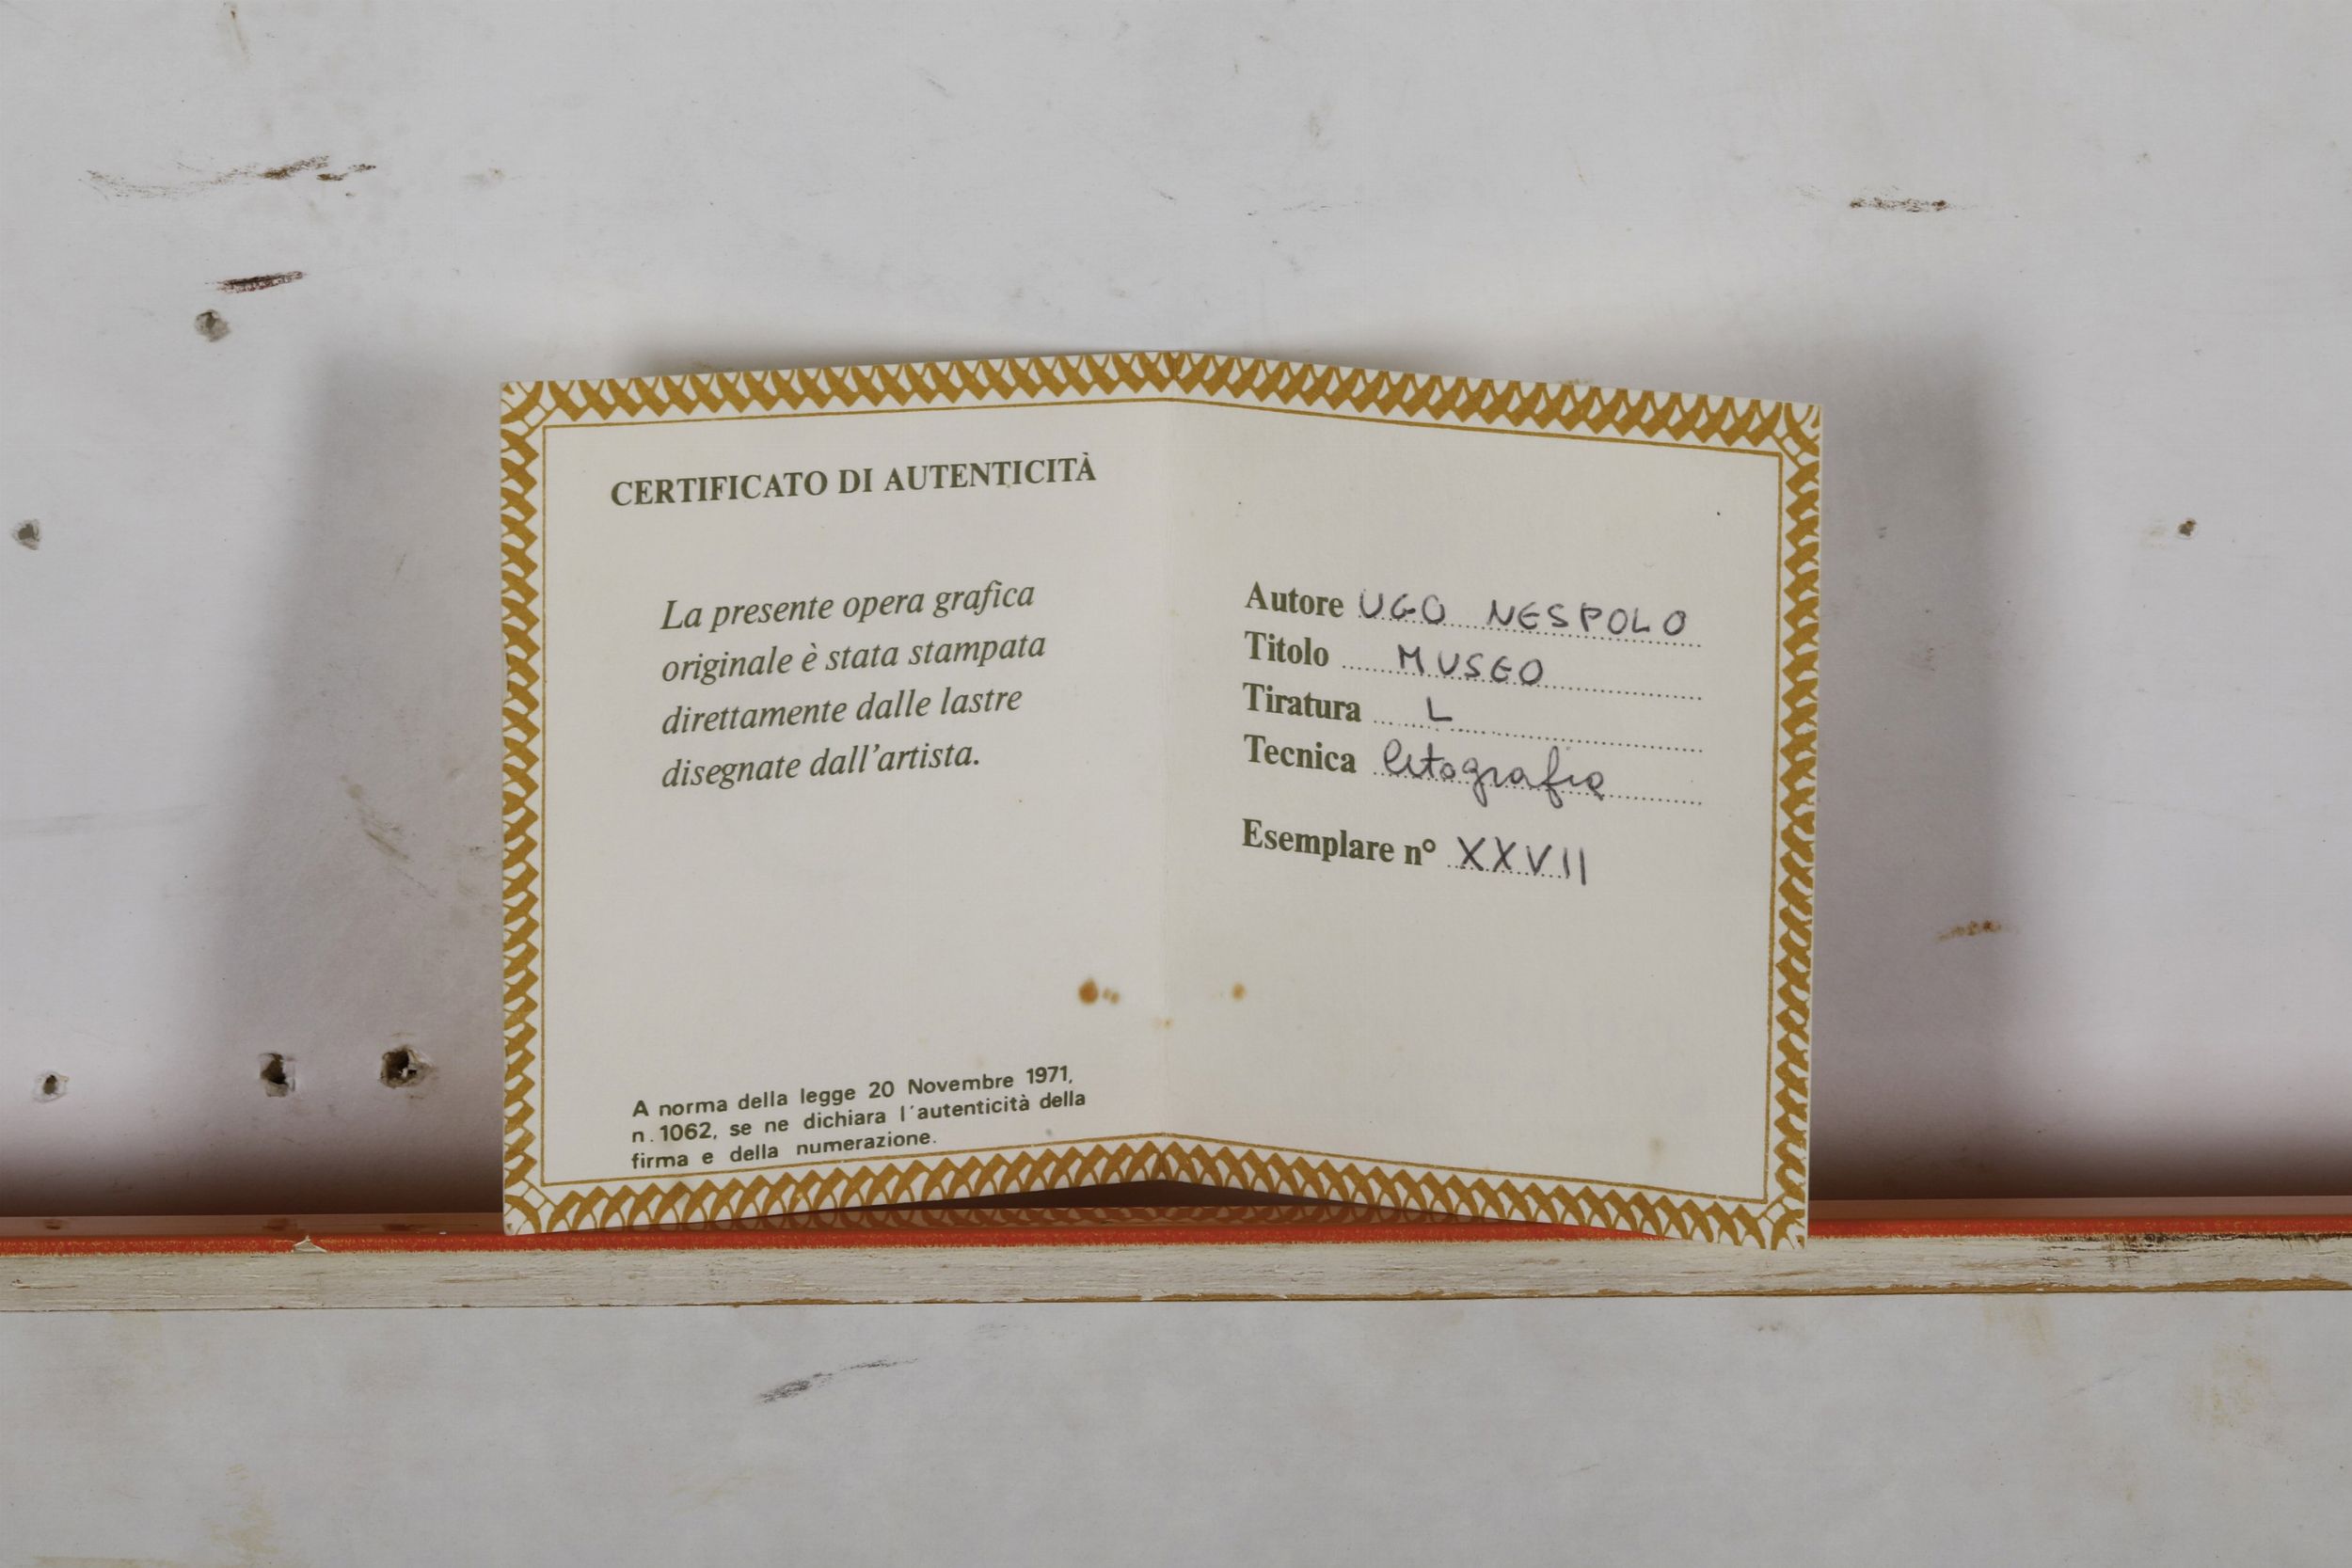 CERTIFICATO DI AUTENTICITÀ
La presente opera grafica
originale è stata stampata
direttamente dalle lastre
disegnate dall'artista.
A norma della legge 20 Novembre 1971,
n. 1062, se ne dichiara l'autenticità della
firma e della numerazione.
Autore UGO NESPOLO
Titolo MUSEO
Tiratura L
Tecnica litografia
Esemplare n° XXVII